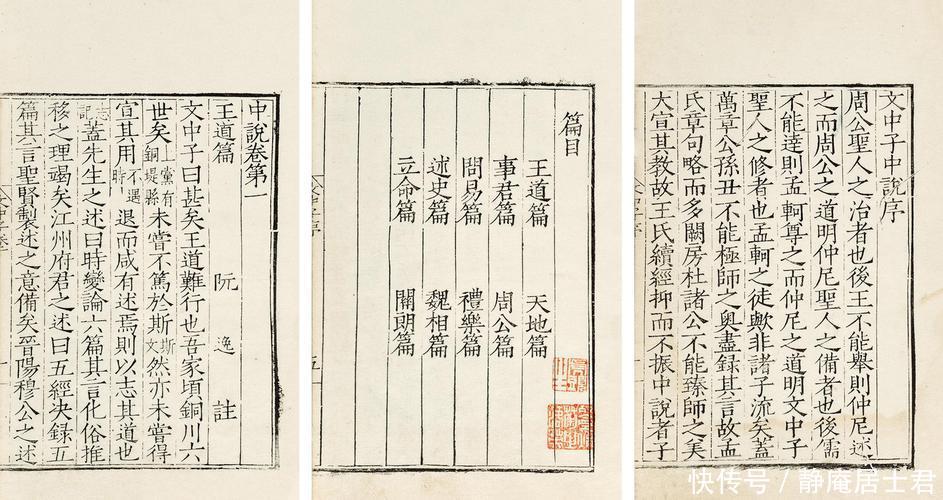 文中子中說序
周公聖人之治者也後王不能舉則仲尼述
之而周公之道明仲尼聖人之備者也後儒
不能逹則孟軻尊之而仲尼之道明文中子
聖人之修者也孟軻之徒歟非諸子流矣蓋
萬章公孫丑不能極師之奧盡録其言故孟
氏章句略而多闕房杜諸公不能臻師之美
大宣其教故王氏續經抑而不振中說者子
篇目
王道篇 天地篇
事君篇 周公篇
問易篇 禮樂篇
述史篇 魏相篇
立命篇 關朗篇
五
中說卷第一
王道篇 阮逸註
文中子曰甚矣王道難行也吾家頃銅川六
世矣上黨有銅堤縣未嘗不篤於斯斯文然亦未嘗得
宣其用不遇時退而咸有述焉則以志其道也
志記蓋先生之述曰時變論六篇其言化俗推
移之理竭矣江州府君之述曰五經決録五
篇其言聖賢製述之意備矣晉陽穆公之述
快传号 / 静庵居士君